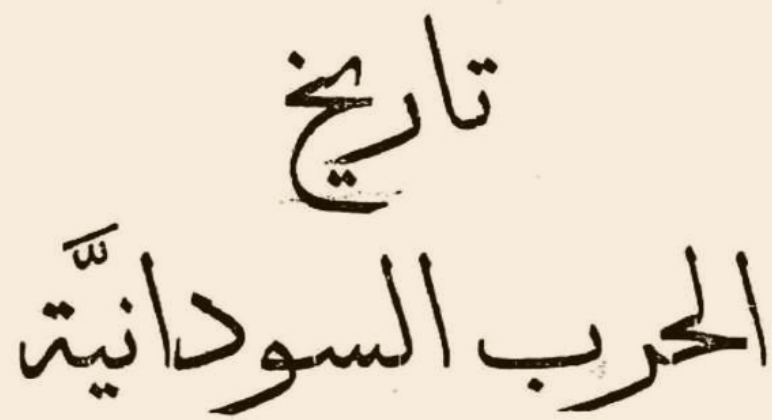 تاريخ
الحرب السودانيَّة